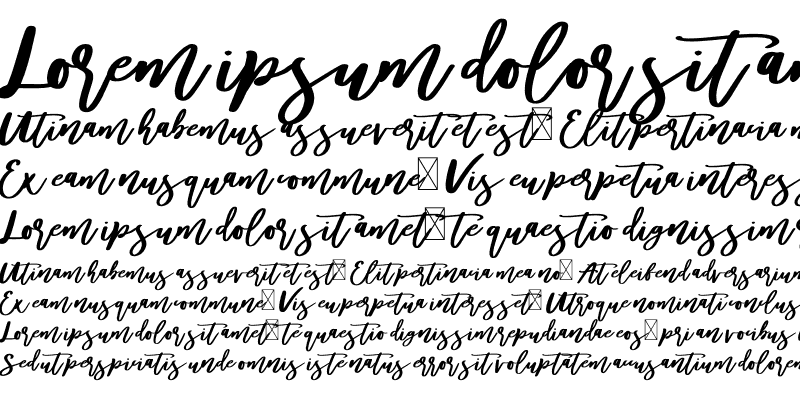 Lorem ipsum dolor sit am
Utinam habemus assueverit et est Elit pertinacia m
Ex eam nusquam commune Vis eu perpetua interess
Lorem ipsum dolor sit amet te quaestio dignissim r
Utinam habemus assueverit et est Elit pertinacia mea no At eleifend adversarium
Ex eam nusquam commune Vis eu perpetua interesset Utroque nominati conclus
Lorem ipsum dolor sit amet te quaestio dignissim repudiandae eos pri an vocibus
Sed ut perspiciatis unde omnis iste natus error sit voluptatem accusantium dolorem